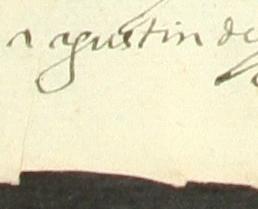 agustin de